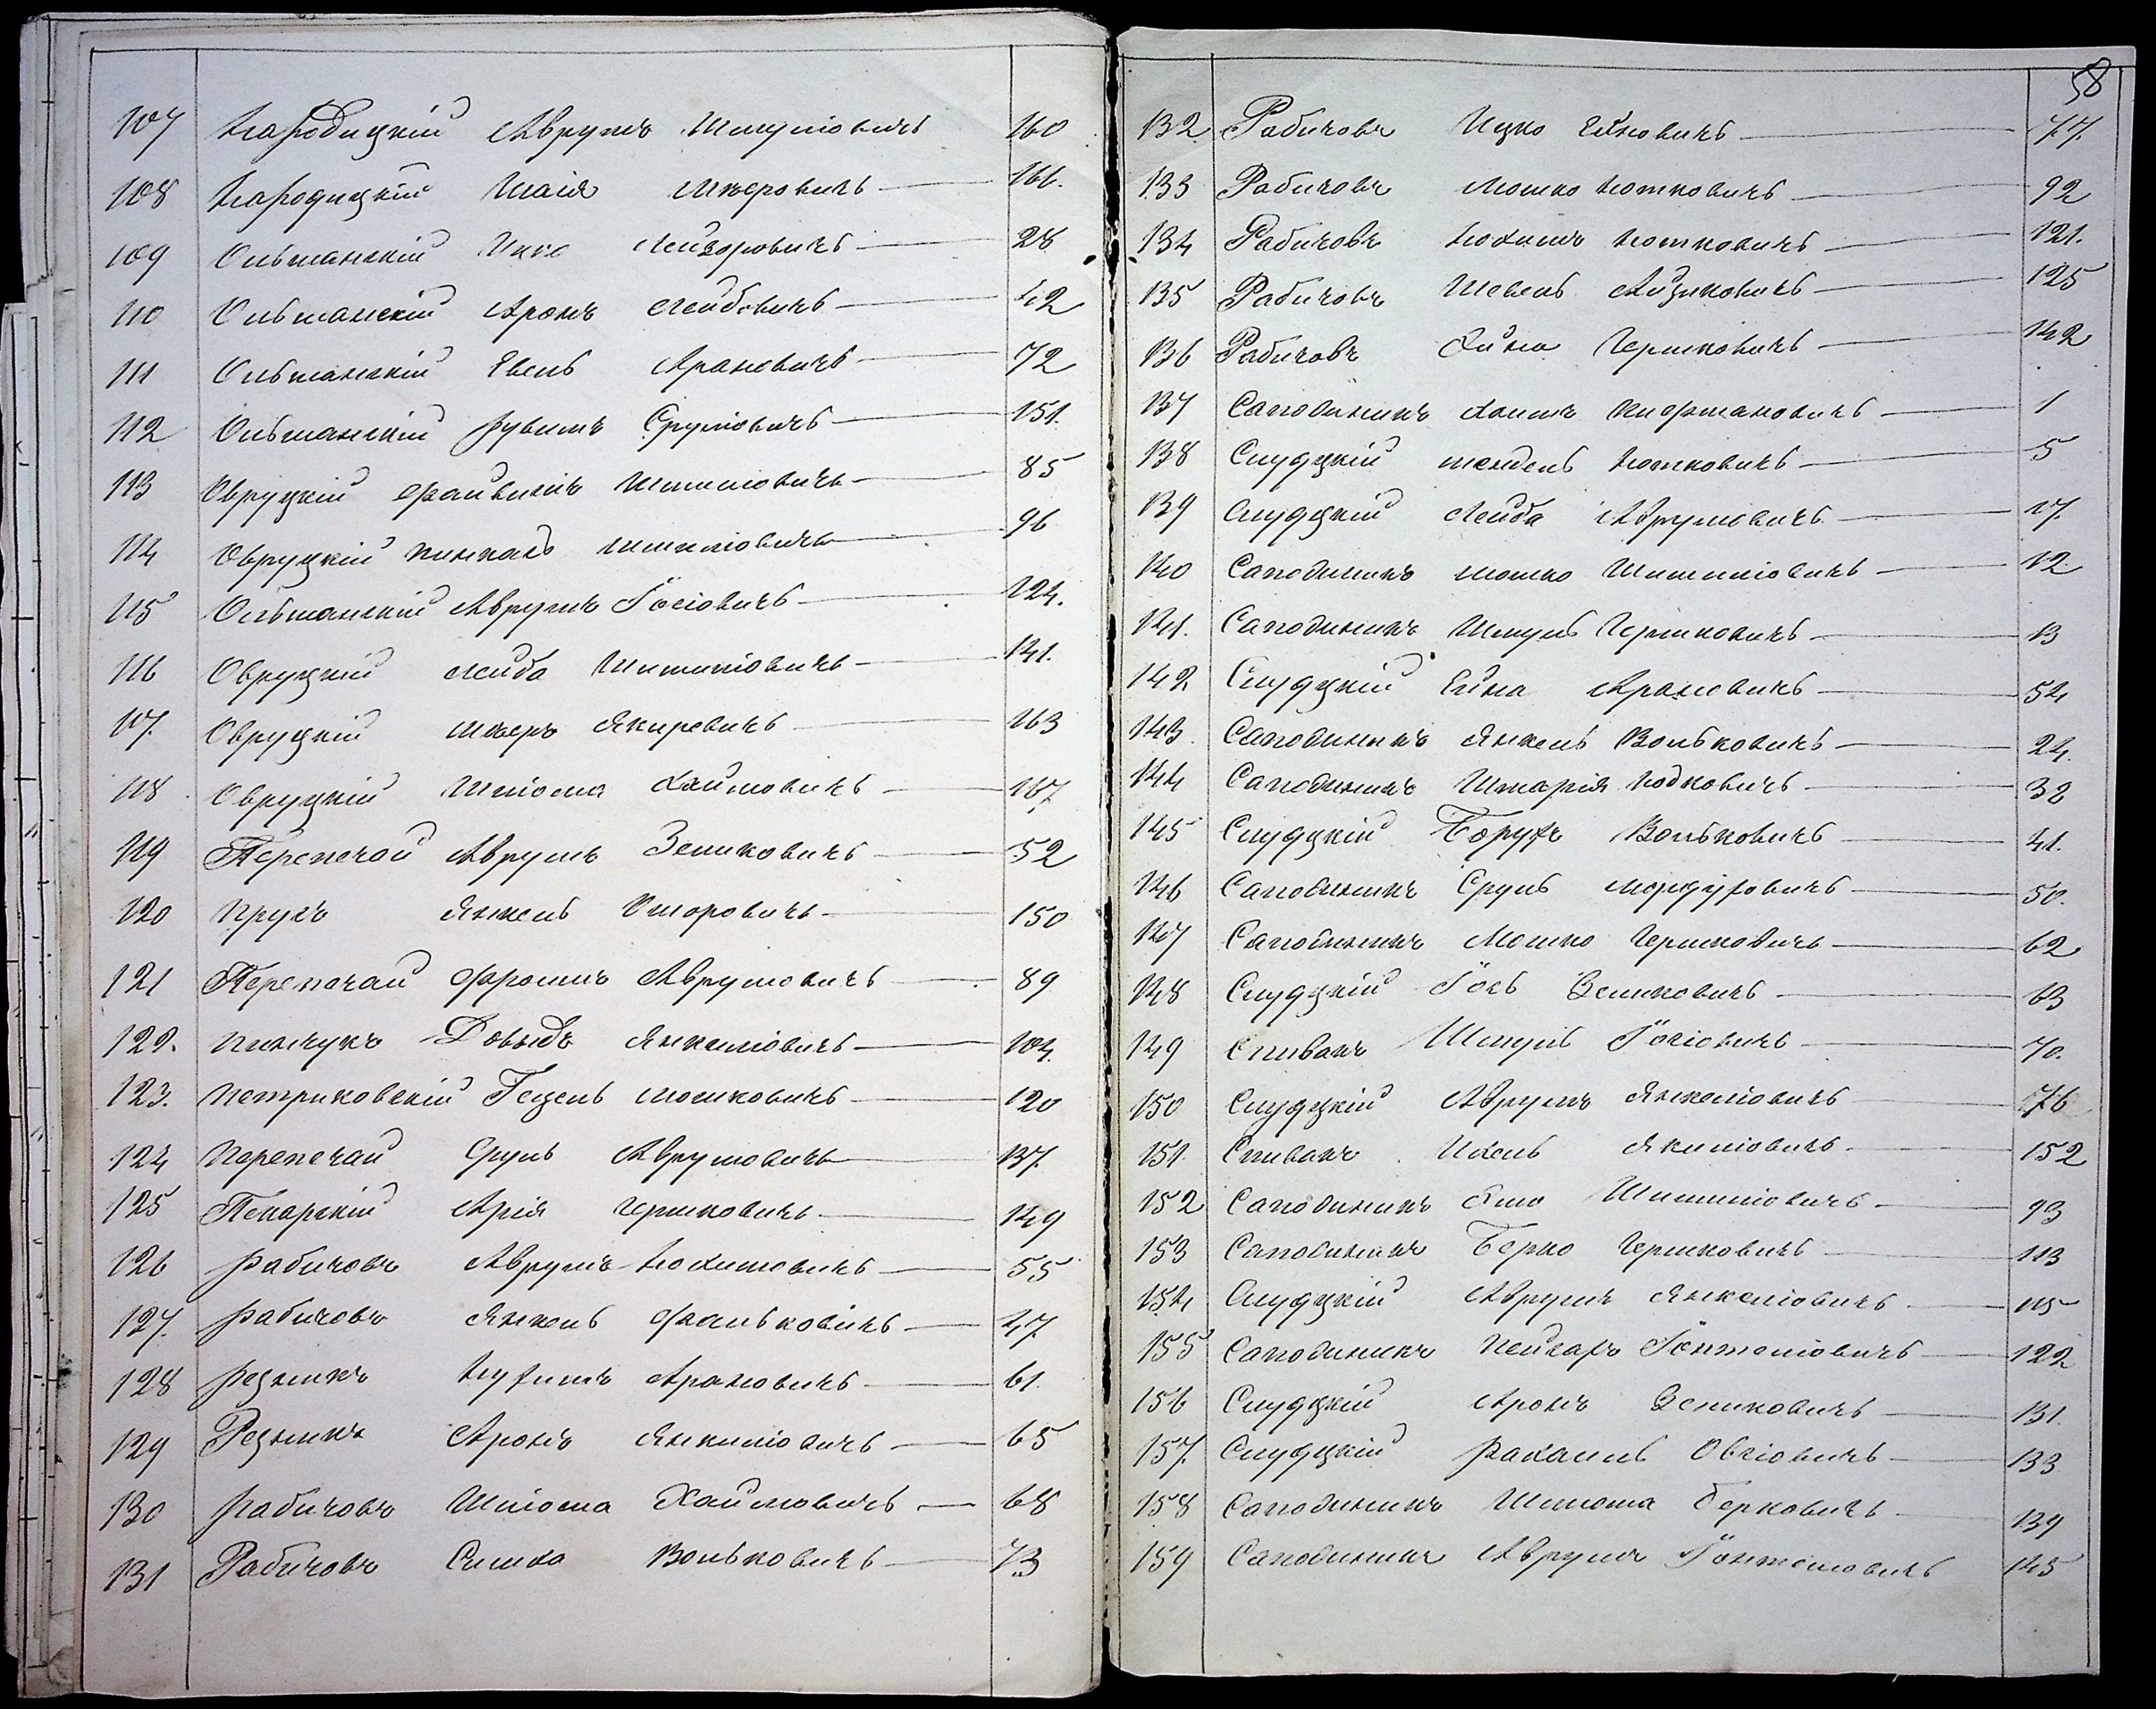 107 Народицкій Аврумъ Шмуліовичъ 160
108 Народицкій Шаія Меровичъ 166.
109 Ольшанскій Ицко Лейзоровичъ 28
110 Ольшанскій Аронъ Лейбовичъ 42
111 Ольшанскій Евель Арановичъ 72
112 Ольшанскій Рувимъ Сруліовичъ 151.
113 Овруцкій Файвишъ Шмиліовичъ 85
114 Овруцкій Пинхасъ Шмиліовичъ 96
115 Ольшанскій Аврумъ Іосіовичъ 124.
116 Овруцкій Лейба Шмиліовичъ 141.
117. Овруцкій Мееръ Якировичъ 163
118 Овруцкій Шліома Хаимовичъ 167
119 Перепечай Аврумъ Зеликовичъ 52
120 Пругъ Янкель Ошоровичъ 150
121 Перепечай Фроимъ Аврумовичъ 89
122. Пинчукъ Довыдъ Янкеліовичъ 104.
123. Петриковскій Гецель Мошковичъ 120
124 Перепечай Сруль Аврумовичъ 137.
125 Пекарскій Арія Гершковичъ 149
126 Рабичовъ Аврумъ Нохимовичъ 55
127. Рабичовъ Янкель Фальковичъ 47.
128 Резникъ Нухимъ Арановичъ 61.
129 Резникъ Аронъ Янкиліовичъ 65
130 Рабичовъ Шліома Хаимовичъ 68
131 Рабичовъ Симха Вольковичъ 73
58
132 Рабичовъ Ицко Ейновичъ 77.
133 Рабичовъ Мошко Нотковичъ 92
134 Рабичовъ Нохимъ Нотковичъ 121.
135 Рабичовъ Шевель Айзиковичъ 125
136 Рабичовъ Хина Гершковичъ 142
137 Саподникъ Хаимъ 1
138 Слуцкій Мендель Нотковичъ 5
139 Слуцкій Лейба Аврумовичъ 17.
140 Саподникъ Мошко Шмиліовичъ 12
141. Саподникъ Шмуль Гершковичъ 13
142 Слуцкій Ейна Арановичъ 54
143 Саподникъ Янкель Вольковичъ 24.
144 Саподникъ Шмарія 32
145 Слуцкій Борухъ Вольковичъ 41.
146 Саподникъ Сруль Мордуховичъ 50.
147 Саподникъ Мошко Гершковичъ 62
148 Слуцкій Іось Зеликовичъ 63
149 Спивакъ Шмуль Іосіовичъ 70.
150 Слуцкій Аврумъ Янкеліовичъ 76
151. Спивакъ Ихель Якиліовичъ 152
152 Саподникъ Шмиліовичъ 93
153 Саподникъ Берко Гершковичъ 113
154 Слуцкій Аврумъ Янкеліовичъ 115
155 Саподникъ 122
156 Слуцкій Аронъ Зеликовичъ 131.
157. Слуцкій Рахмиль Овсіовичъ 133
158 Саподникъ Шліома Берковичъ 139
159 Саподникъ Аврумъ 145